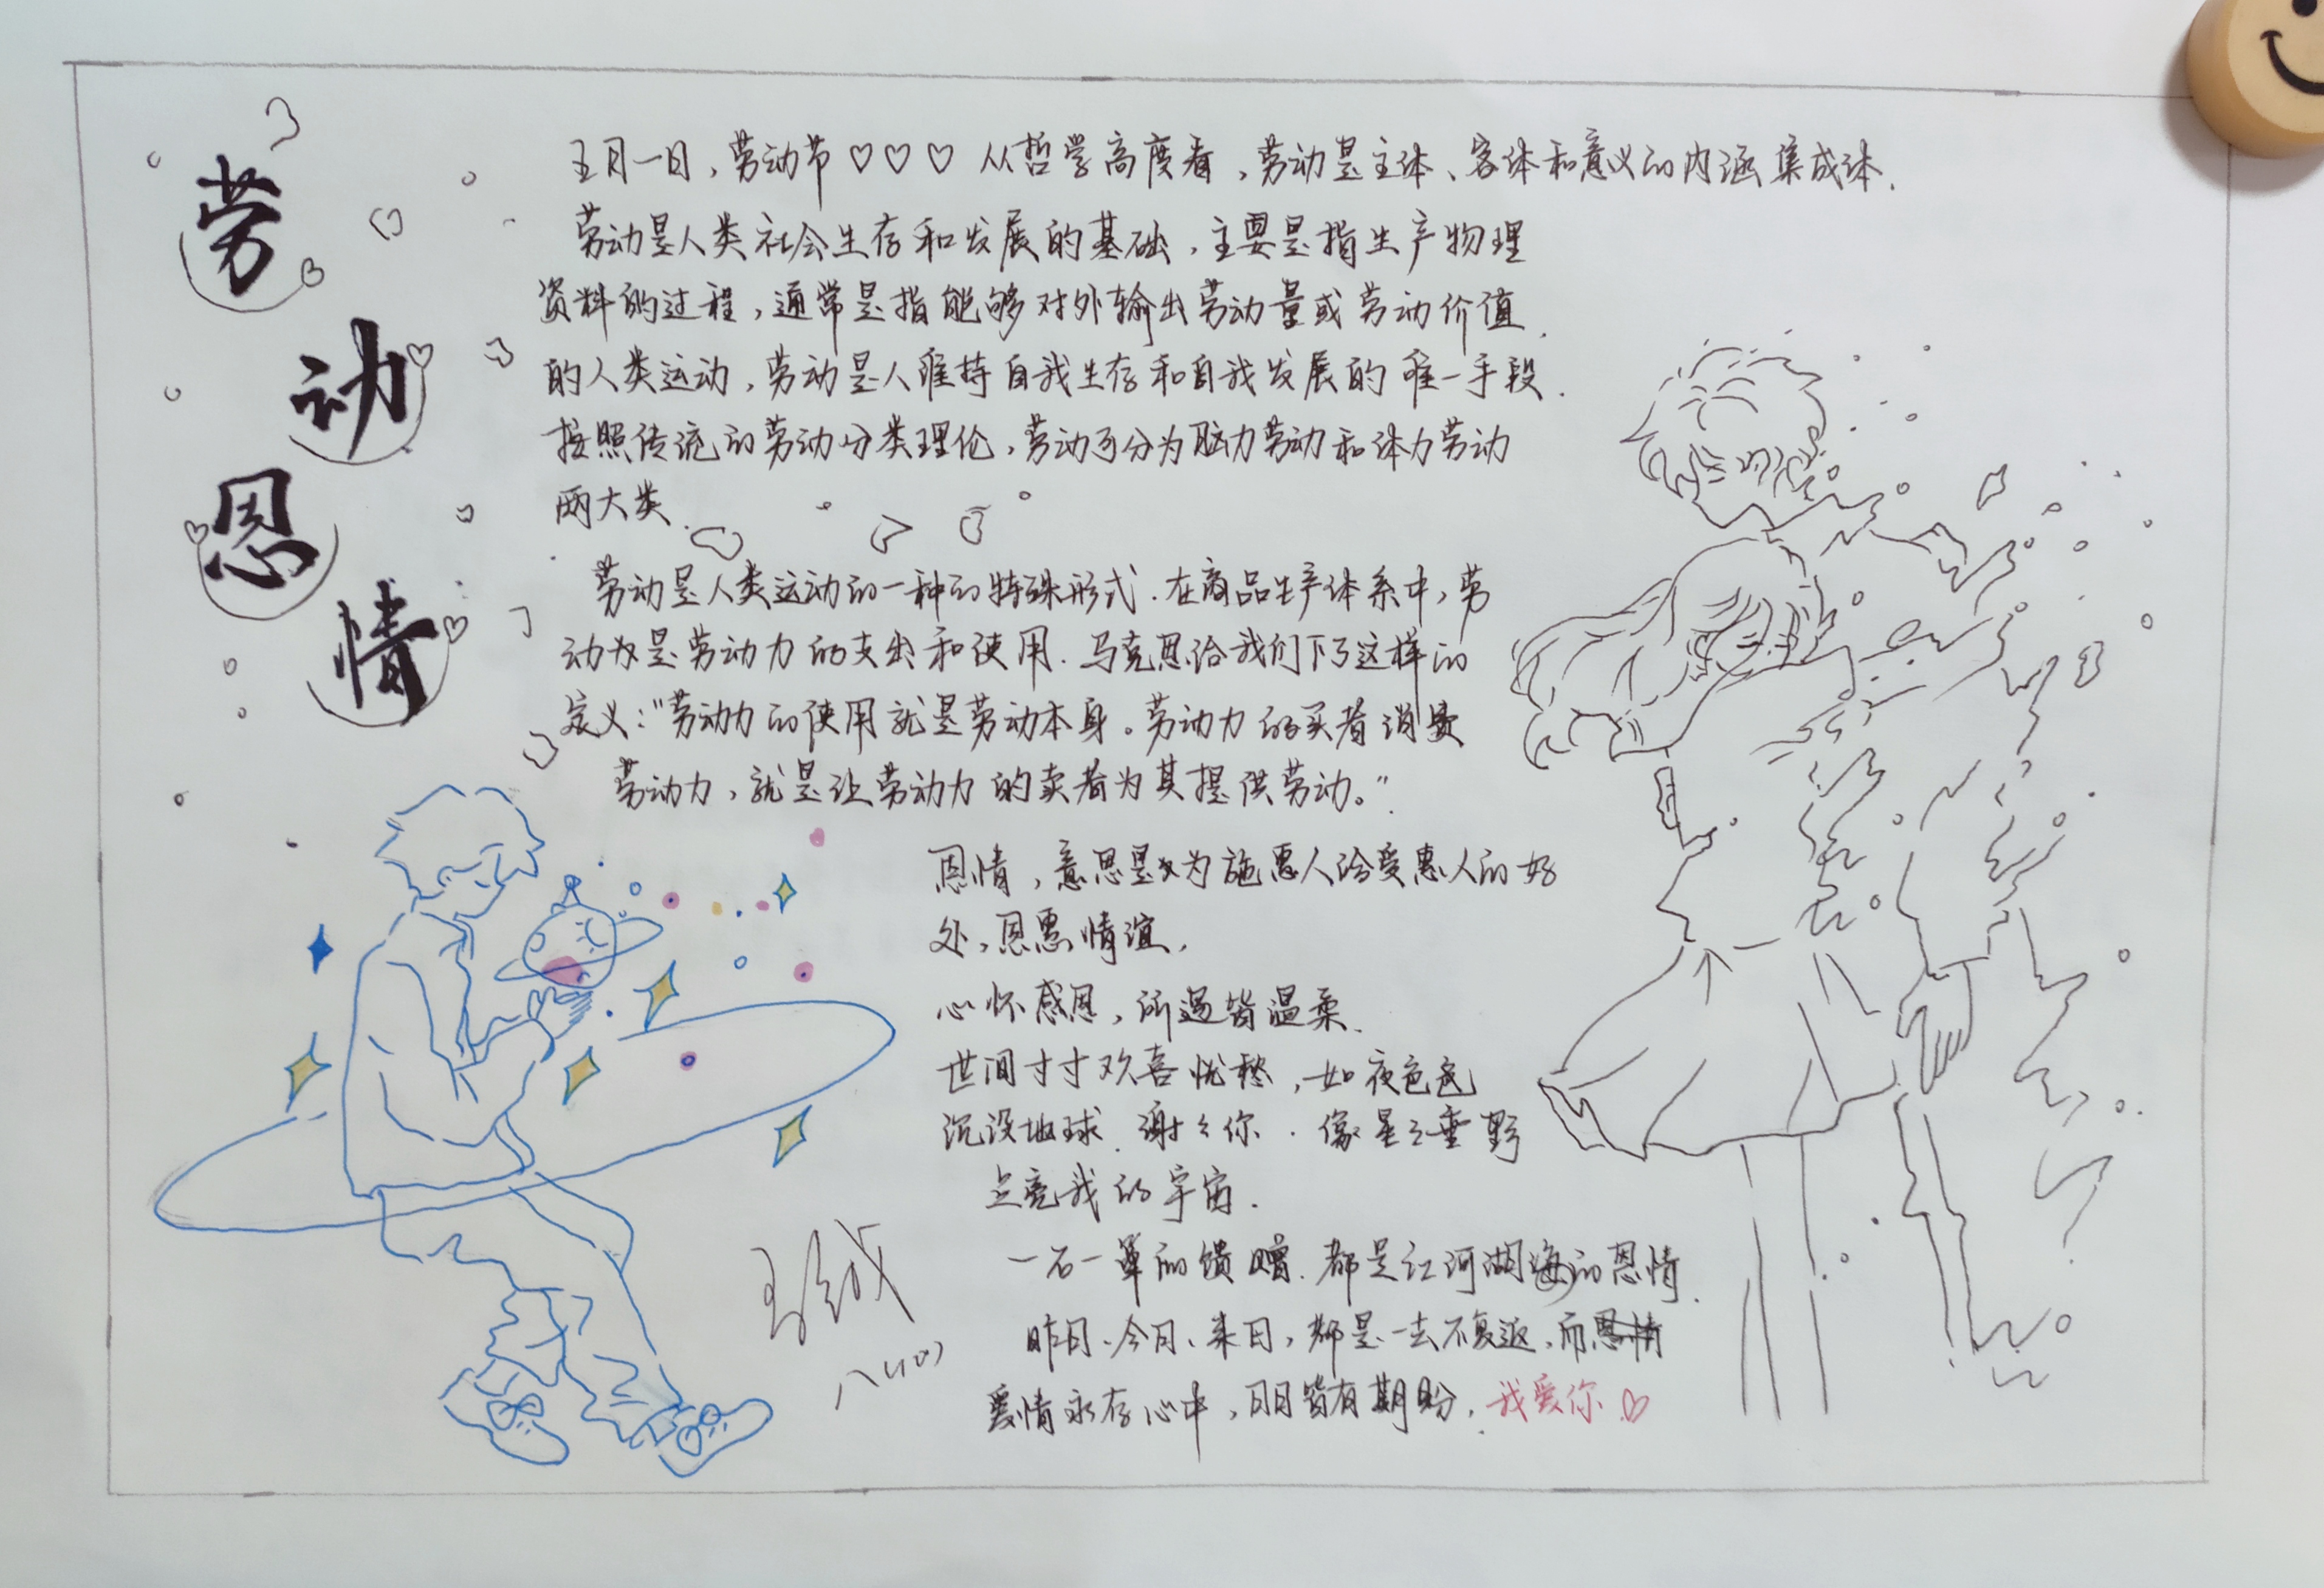 劳
动
恩
情
五月一日，劳动节♡♡♡从哲学高度看，劳动是主体、客体和意义的内涵集成体.
劳动是人类社会生存和发展的基础，主要是指生产物理
资料的过程，通常是指能够对外输出劳动量或劳动价值
的人类运动，劳动是人维持自我生存和自我发展的唯一手段.
按照传统的劳动分类理伦，劳动可分为脑力劳动和体力劳动
两大类.
劳动是人类运动的一种的特殊形式.在商品生产体系中，劳
动是劳动力的支出和使用.马克思给我们下了这样的
定义："劳动力的使用就是劳动本身。劳动力的买者消费
劳动力，就是让劳动力的卖者为其提供劳动。".
恩情，意思是为施惠人给受惠人的好
处，恩惠情谊，
心怀感恩，所遇皆温柔.
世间寸寸欢喜忧愁，如夜色色
沉没地球.谢々你.像星々垂野
点亮我的宇宙.
一石一草的馈赠.都是江河湖海的恩情.
昨日、今日、来日，都是一去不复返，而恩情
爱情永存心中，日日皆有期盼.我爱你♡